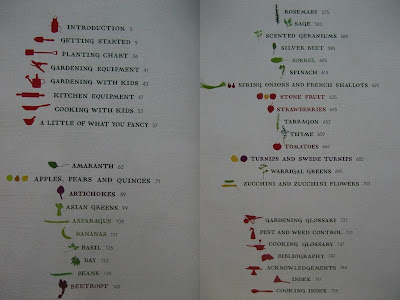 INTRODUCTION 3
GETTING STARTED 9
PLANTING CHART 26
GARDENING EQUIPMENT 41
GARDENING WITH KIDS 43
KITCHEN EQUIPMENT 47
COOKING WITH KIDS 53
A LITTLE OF WHAT YOU FANCY 57
AMARANTH 63
APPLES, PEARS AND QUINCES 71
ARTICHOKES 89
ASIAN GREENS 99
ASPARAGUS 109
BANANAS
BASIL
BAY
BEANS
BEETROOT
ROSEMARY
SAGE
SCENTED GERANIUMS
SILVER BEET
SORREL
SPINACH
SPRING ONIONS AND FRENCH SHALLOTS
STONE FRUIT
STRAWBERRIES
TARRAGON
THYME 659
TOMATOES 667
TURNIPS AND SWEDE TURNIPS
WARRIGAL GREENS
ZUCCHINI AND ZUCCHINI FLOWERS
GARDENING GLOSSARY
PEST AND WEED CONTROL
COOKING GLOSSARY
BIBLIOGRAPHY
ACKNOWLEDGEMENTS
INDEX
COOKING INDEX